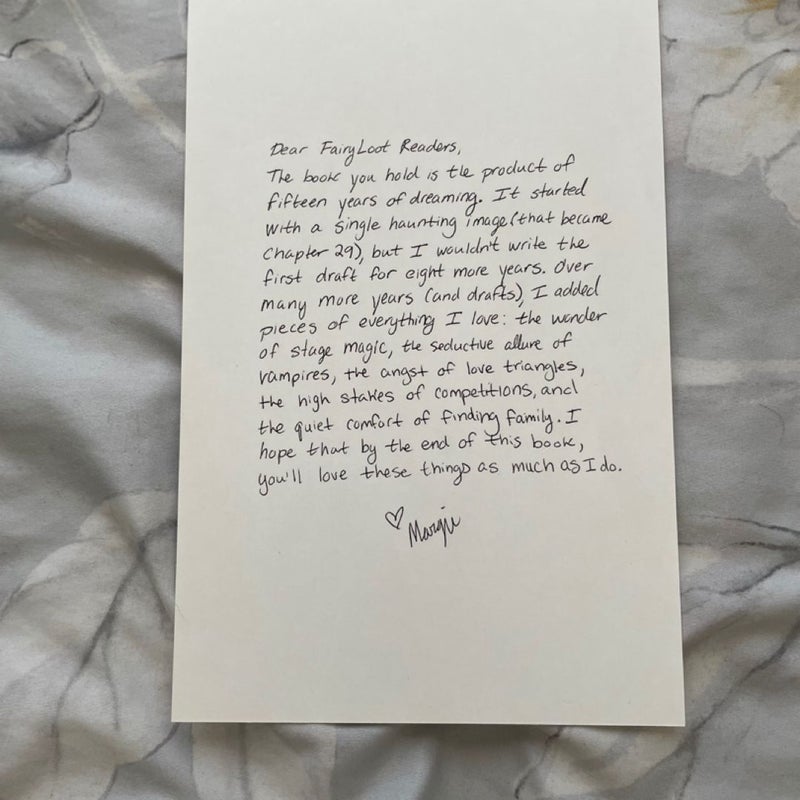 Dear FairyLoot Readers,
The book you hold is the product of
fifteen years of dreaming. It started
with a single haunting image (that became
Chapter 29), but I wouldn't write the
first draft for eight more years. Over
many more years (and drafts), I added
pieces of everything I love: the wonder
of stage magic, the seductive allure of
vampires, the angst of love triangles,
the high stakes of competitions, and
the quiet comfort of finding family. I
hope that by the end of this book,
you'll love these things as much as I do.
♡ Margie